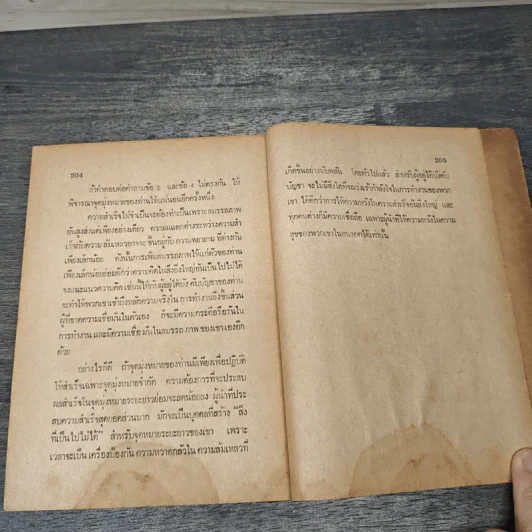 204
ถ้าคำตอบต่อคำถามข้อ ๕ และข้อ 4 ไม่ตรงกัน ให้
พิจารณาจุดมุ่งหมายของท่านให้แน่นอนอีกครั้งหนึ่ง
ความสำเร็จไม่จำเป็นจะต้องทำเป็นเพราะสมรรถภาพ
อันสูงส่งแต่เพียงอย่างเดียว ความแตกต่างระหว่างความสำ
เร็จกับความล้มเหลวอาจจะขึ้นอยู่กับความพยายามที่ต่างกัน
เพียงเล็กน้อย ดังนั้นการเพิ่มสมรรถภาพให้แก่ตัวของท่าน
เพียงเล็กน้อยย่อมดีกว่าความคิดในสิ่งยิ่งใหญ่อันเป็นไปไม่ได้
จงแนะแนวความคิดเช่นนี้ให้กับผู้อยู่ใต้บังคับบัญชาของท่าน
จะทำให้พวกเขาเข้าถึงหลักความจริงใน การทำงานยิ่งขึ้นส่วน
ผู้ที่ขาดความเชื่อมั่นในตัวเอง ก็จะมีความกระตือรือร้นใน
การทำงานและมีความเชื่อมั่นในสมรรถภาพของเขาเองอีก
ด้วย
อย่างไรก็ดี ถ้าจุดมุ่งหมายของท่านมีเพียงเพื่อปฏิบัติ
ให้สำเร็จเฉพาะจุดมุ่งหมายจำกัด ความต้องการที่จะประสบ
ผลสำเร็จในจุดมุ่งหมายระยะยาวย่อมจะลดน้อยลง ผู้นำที่ประ
สบความสำเร็จสุดยอดส่วนมาก มักจะเป็นบุคคลที่สร้าง "สิ่ง
ที่เป็นไปไม่ได้" สำหรับจุดหมายระยะยาวของเขา เพราะ
เวลาจะเป็นเครื่องป้องกันความหวาดกลัวใน ความล้มเหลวที่
205
เกิดขึ้นอย่างฉับพลัน โดยทั่วไปแล้ว สำหรับผู้อยู่ใต้บังคับ
บัญชา จะไม่มีสิ่งใดที่จะเร่งเร้ากำลังใจในการทำงานของพวก
เขา ได้ดีกว่าการให้ความหวังในความสำเร็จอันยิ่งใหญ่ และ
ทุกคนต่างก็มีความเชื่อถือ เฉพาะผู้นำที่ให้ความหวังในความ
สุขของพวกเขาในอนาคตได้เท่านั้น